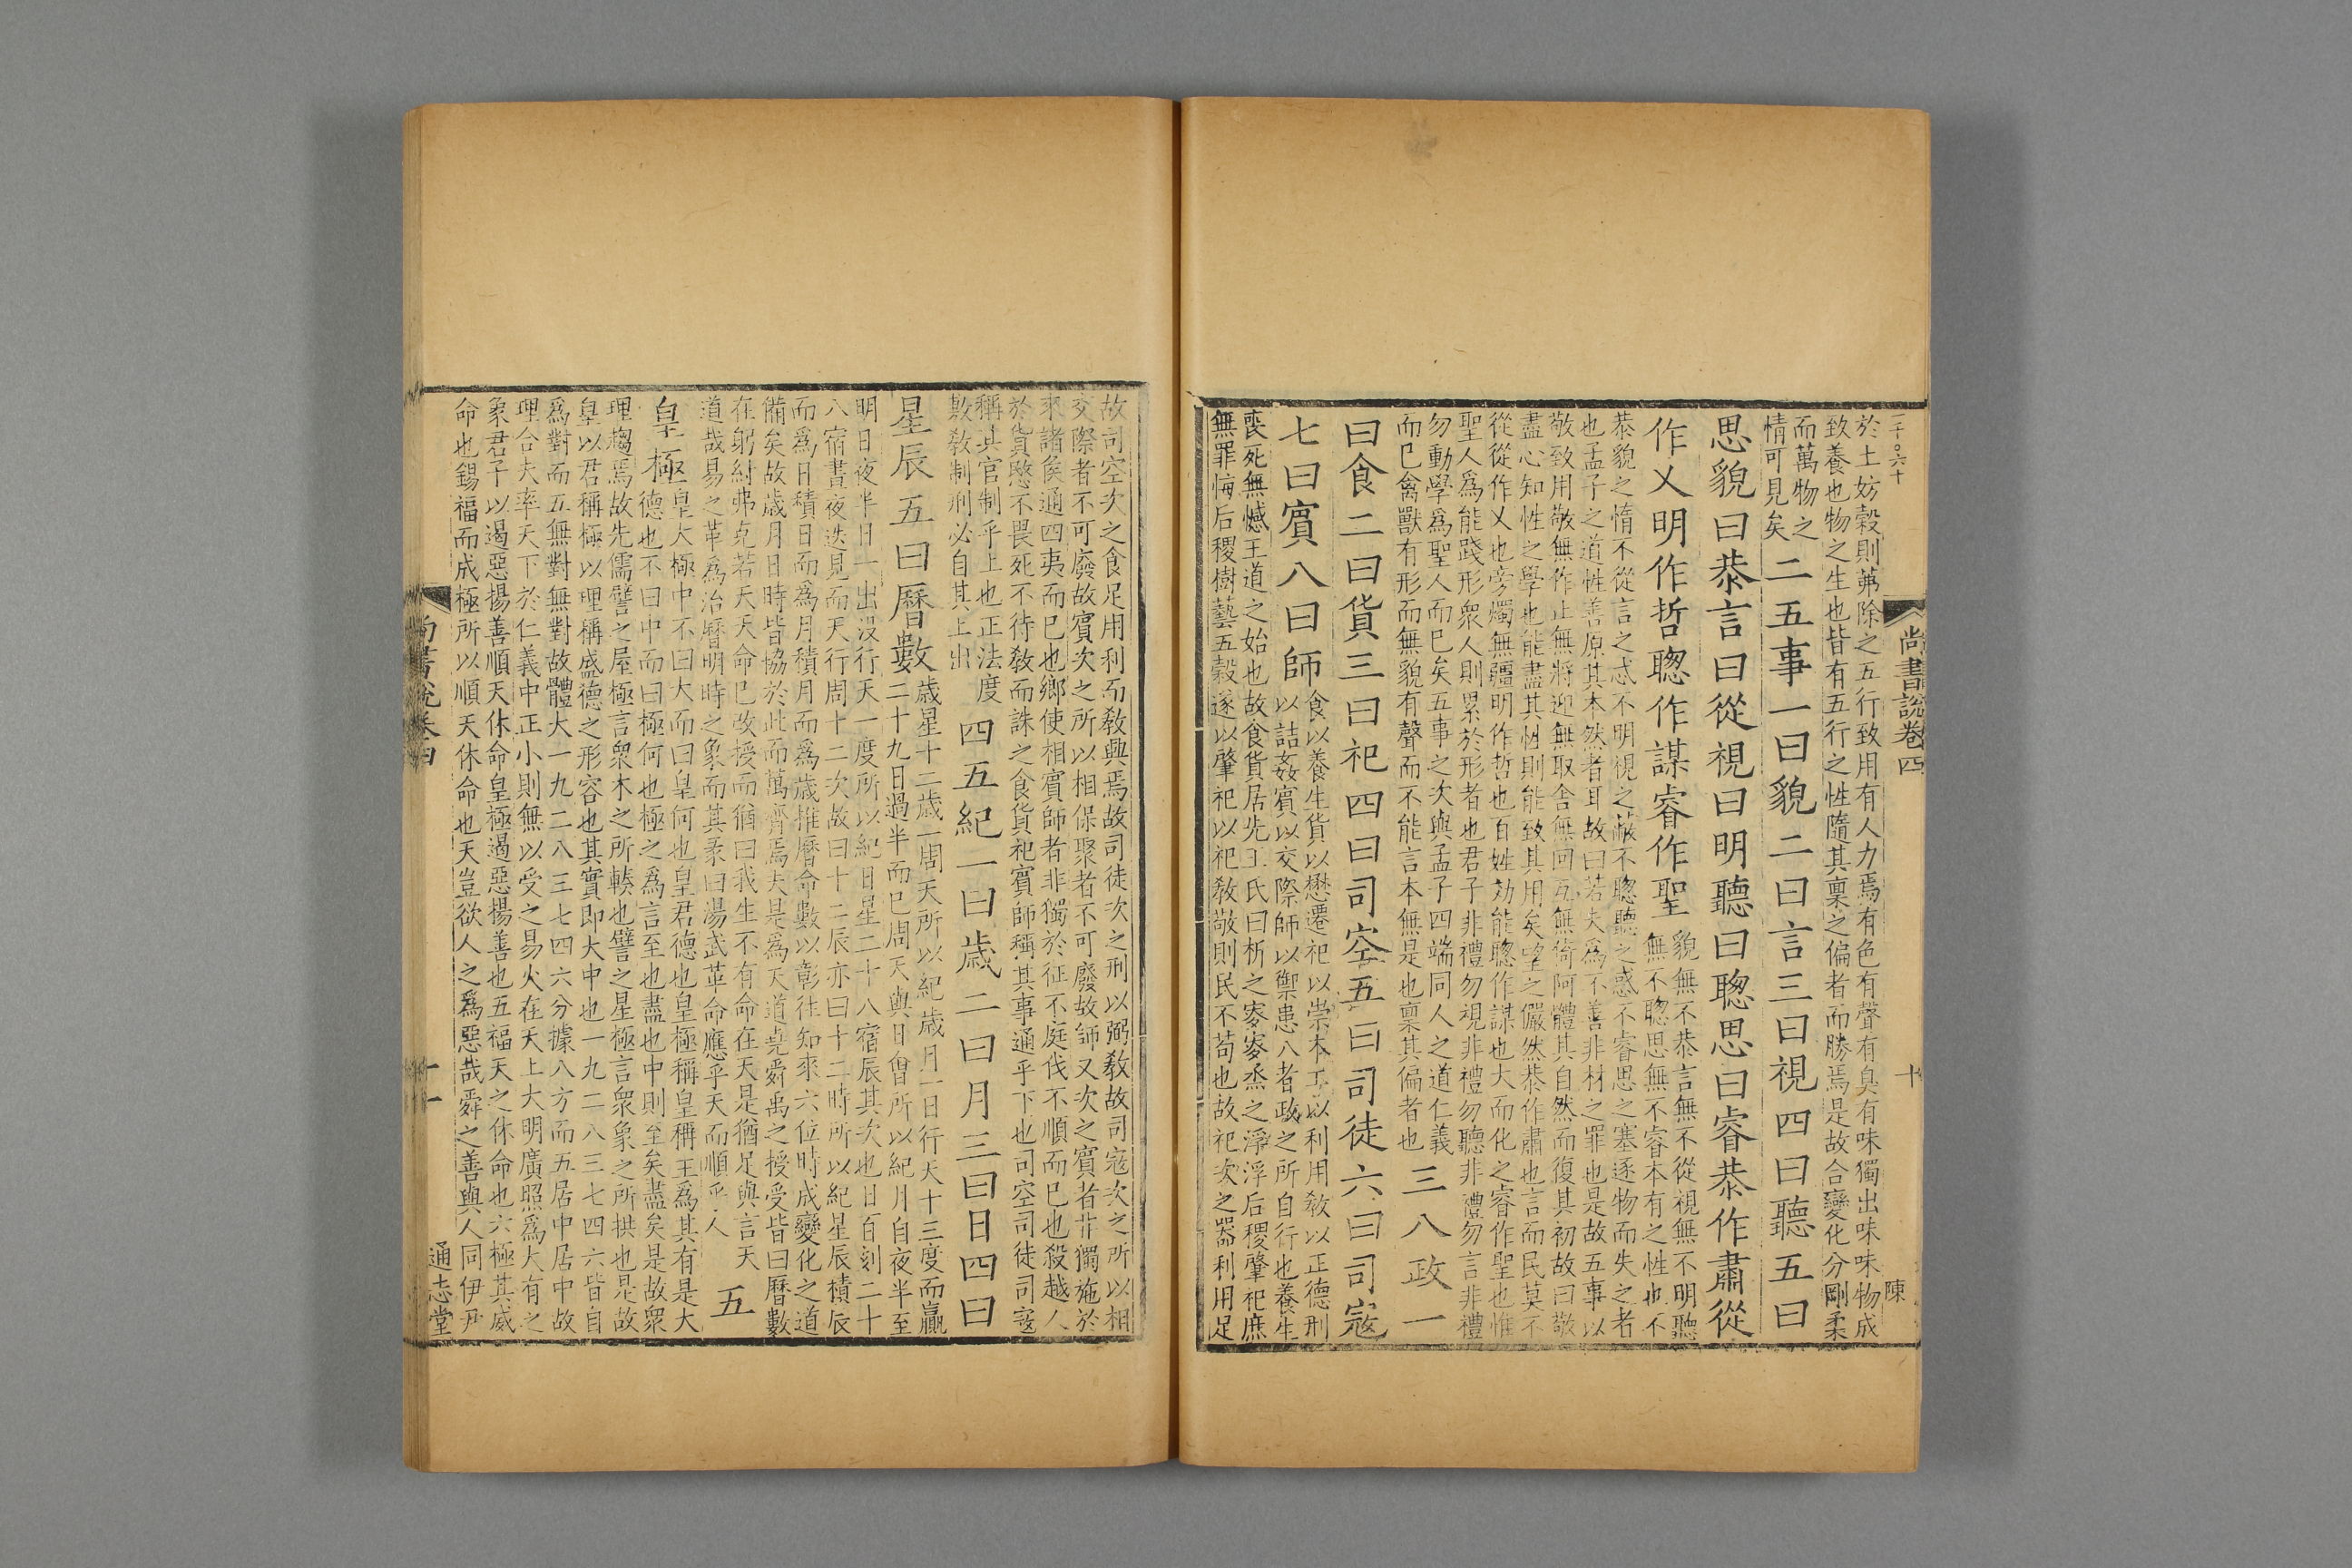 二千〇六十
尚書說卷四
十
陳
於土妨穀則茀除之五行致用有人力焉有色有聲有臭有味獨出味味物成
致養也物之生也皆有五行之性隨其稟之偏者而勝焉是故合變化分剛柔
而萬物之
情可見矣
二五事一曰貌二曰言三曰視四曰聽五曰
思貌曰恭言曰從視曰明聽曰聦思曰睿恭作肅從
作乂明作哲聦作謀睿作聖
貌無不恭言無不從視無不明聽
無不聦思無不睿本有之性也不
恭貌之惰不從言之忒不明視之蔽不聦聽之惑不睿思之塞逐物而失之者
也孟子之道性善原其本然者耳故曰若夫為不善非材之罪也是故五事以
敬致用敬無作止無將迎無取舍無回互無倚阿體其自然而復其初故曰敬
盡心知性之學也能盡其性則能致其用矣望之儼然恭作肅也言而民莫不
從從作乂也旁燭無疆明作哲也百姓効能聦作謀也大而化之睿作聖也惟
聖人爲能踐形衆人則累於形者也君子非禮勿視非禮勿聽非禮勿言非禮
勿動學爲聖人而已矣五事之次與孟子四端同人之道仁義
而已禽獸有形而無貌有聲而不能言本無是也稟其偏者也
三八政一
曰食二曰貨三曰祀四曰司空五曰司徒六曰司寇
七曰賓八曰師
食以養生貨以懋遷祀以崇本工以利用敎以正德刑
以詰姦賓以交際師以禦患八者政之所自行也養生
喪死無憾王道之始也故食貨居先王氏曰析之麥麥烝之浮浮后稷肇祀庶
無罪悔后稷樹藝五穀遂以肇祀以祀敎敬則民不苟也故祀次之器利用足
故司空次之食足用利而敎興焉故司徒次之刑以弼敎故司寇次之所以相
交際者不可廢故賓次之所以相保聚者不可廢故師又次之賓者非獨施於
來諸侯通四夷而已也鄉使相賓師者非獨於征不庭伐不順而已也殺越人
於貨愍不畏死不待敎而誅之食貨祀賓師稱其事通乎下也司空司徒司寇
稱其官制乎上也正法度
敷敎制刑必自其上出
四五紀一曰歲二曰月三曰日四曰
星辰五曰曆數
歲星十二歲一周天所以紀歲月一日行天十三度而贏
二十九日過半而已周天與日㑹所以紀月自夜半至
明日夜半日一出沒行天一度所以紀日星二十八宿辰其次也日百刻二十
八宿晝夜迭見而天行周十二次故曰十二辰亦曰十二時所以紀星辰積辰
而爲日積日而爲月積月而爲歲推曆命數以彰往知來六位時成變化之道
備矣故歲月日時皆協於此而萬齊焉夫是爲天道堯舜禹之授受皆曰曆數
在躬紂弗克若天天命已改授而猶曰我生不有命在天是猶足與言天
道哉易之革為治曆明時之象而其彖曰湯武革命應乎天而順乎人
五
皇極
皇大極中不曰大而曰皇何也皇君德也皇極稱皇稱王爲其有是大
德也不曰中而曰極何也極之爲言至也盡也中則至矣盡矣是故衆
理趨焉故先儒譬之屋極言衆木之所輳也譬之星極言衆象之所拱也是故
皇以君稱極以理稱盛德之形容也其實即大中也一九二八三七四六皆自
爲對而五無對無對故體大一九二八三七四六分據八方而五居中居中故
理合夫率天下於仁義中正小則無以受之易火在天上大明廣照爲大有之
象君子以遏惡揚善順天休命皇極遏惡揚善也五福天之休命也六極其威
命也錫福而成極所以順天休命也天豈欲人之爲惡哉舜之善與人同伊尹
尚書說卷四
十一
通志堂